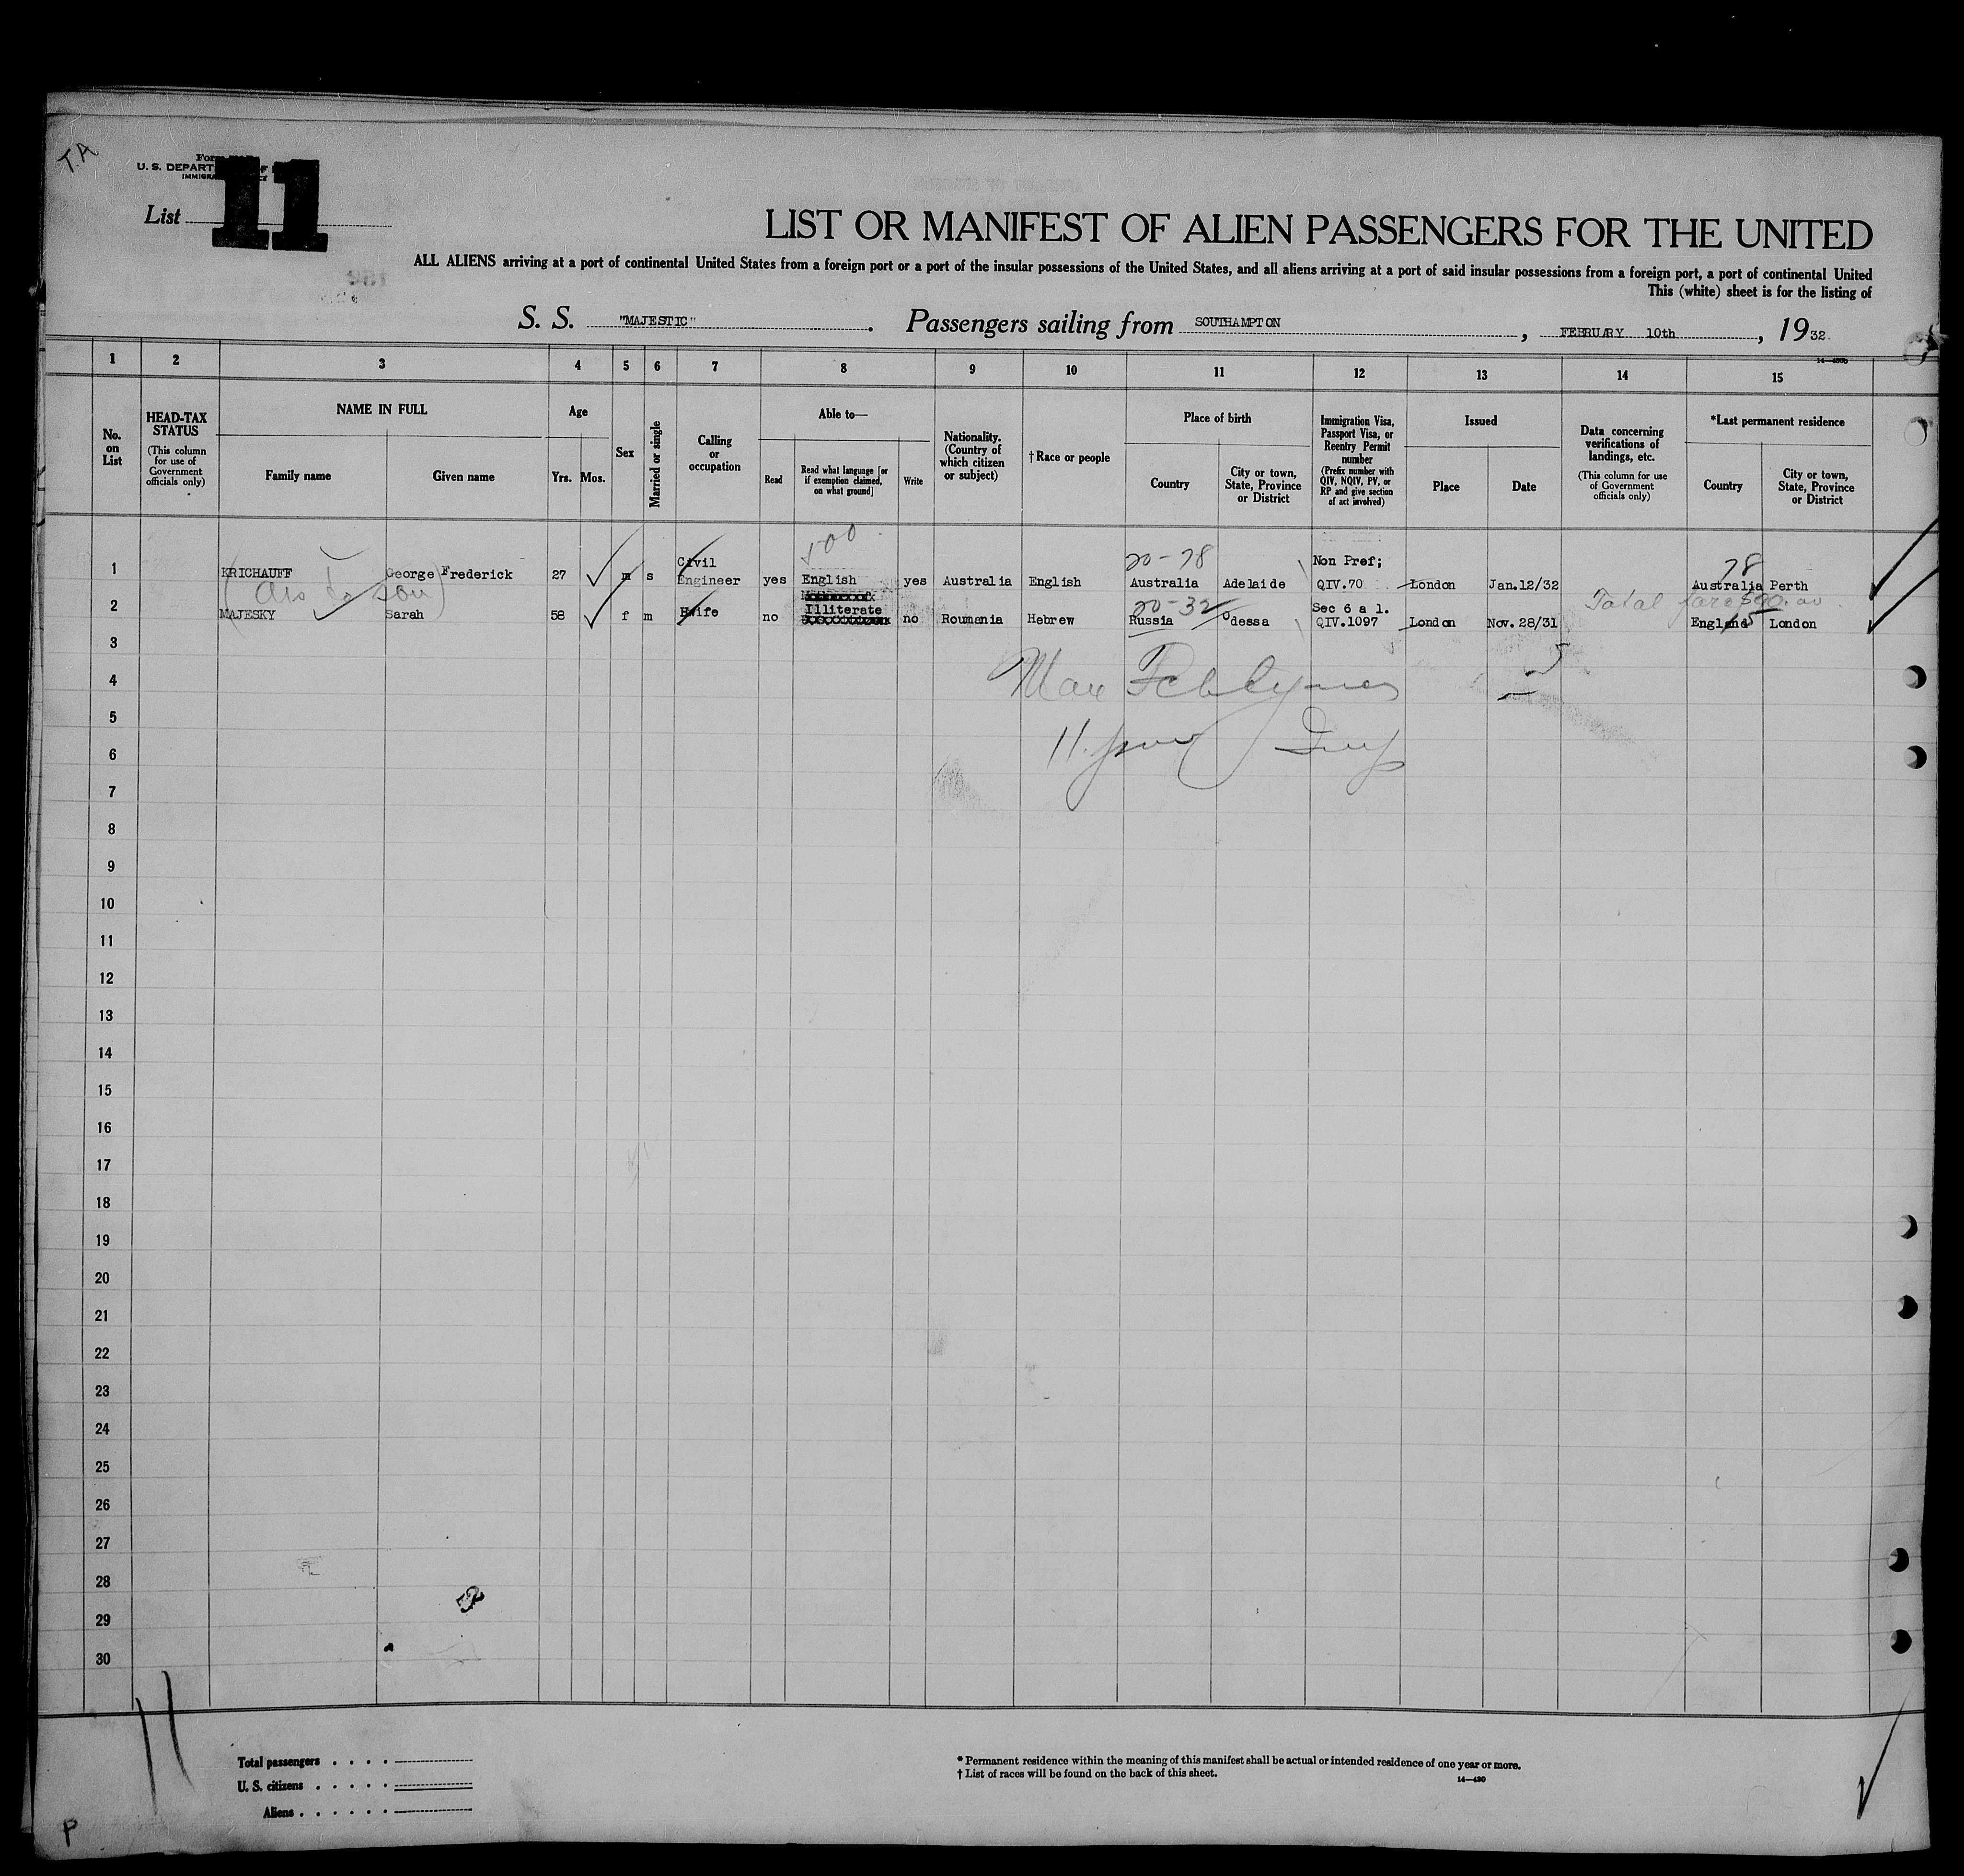 T.A
U. S. DEPART
List 11
LIST OR MANIFEST OF ALIEN PASSENGERS FOR THE UNITED
ALL ALIENS arriving at a port of continental United States from a foreign port or a port of the insular possessions of the United States, and all aliens arriving at a port of said insular possessions from a foreign port, a port of continental United
This (white) sheet is for the listing of
S. S. "MAJESTIC". Passengers sailing from SOUTHAMPTON, FEBRUARY 10th, 1932.
1 2 3 4 5 6 7 8 9 10 11 12 13 14 15
No. on List
HEAD-TAX STATUS (This column for use of Government officials only)
NAME IN FULL
Family name Given name
Age
Yrs. Mos.
Sex
Married or single
Calling or occupation
Able to—
Read
Read what language [or if exemption claimed, on what ground]
Write
Nationality. (Country of which citizen or subject)
†Race or people
Place of birth
Country
City or town, State, Province or District
Immigration Visa, Passport Visa, or Reentry Permit number (Prefix number with QIV, NQIV, PV, or RP and give section of act involved)
Issued
Place Date
Data concerning verifications of landings, etc. (This column for use of Government officials only)
*Last permanent residence
Country
City or town, State, Province or District
20-78 78
1 KRICHAUFF George Frederick 27 m s Civil Engineer yes English yes Australia English Australia Adelaide Non Pref; QIV.70 London Jan.12/32 Australia Perth
20-32 Total
2 MAJESKY Sarah 58 f m Hwife no Illiterate no Roumania Hebrew Russia Odessa Sec 6 a 1. QIV.1097 London Nov.28/31 England London
3
4
5
6
7
8
9
10
11
12
13
14
15
16
17
18
19
20
21
22
23
24
25
26
27
28
29
30
Total passengers . . . .
U. S. citizens . . . . .
Aliens . . . . . .
* Permanent residence within the meaning of this manifest shall be actual or intended residence of one year or more.
† List of races will be found on the back of this sheet.
14—430
P